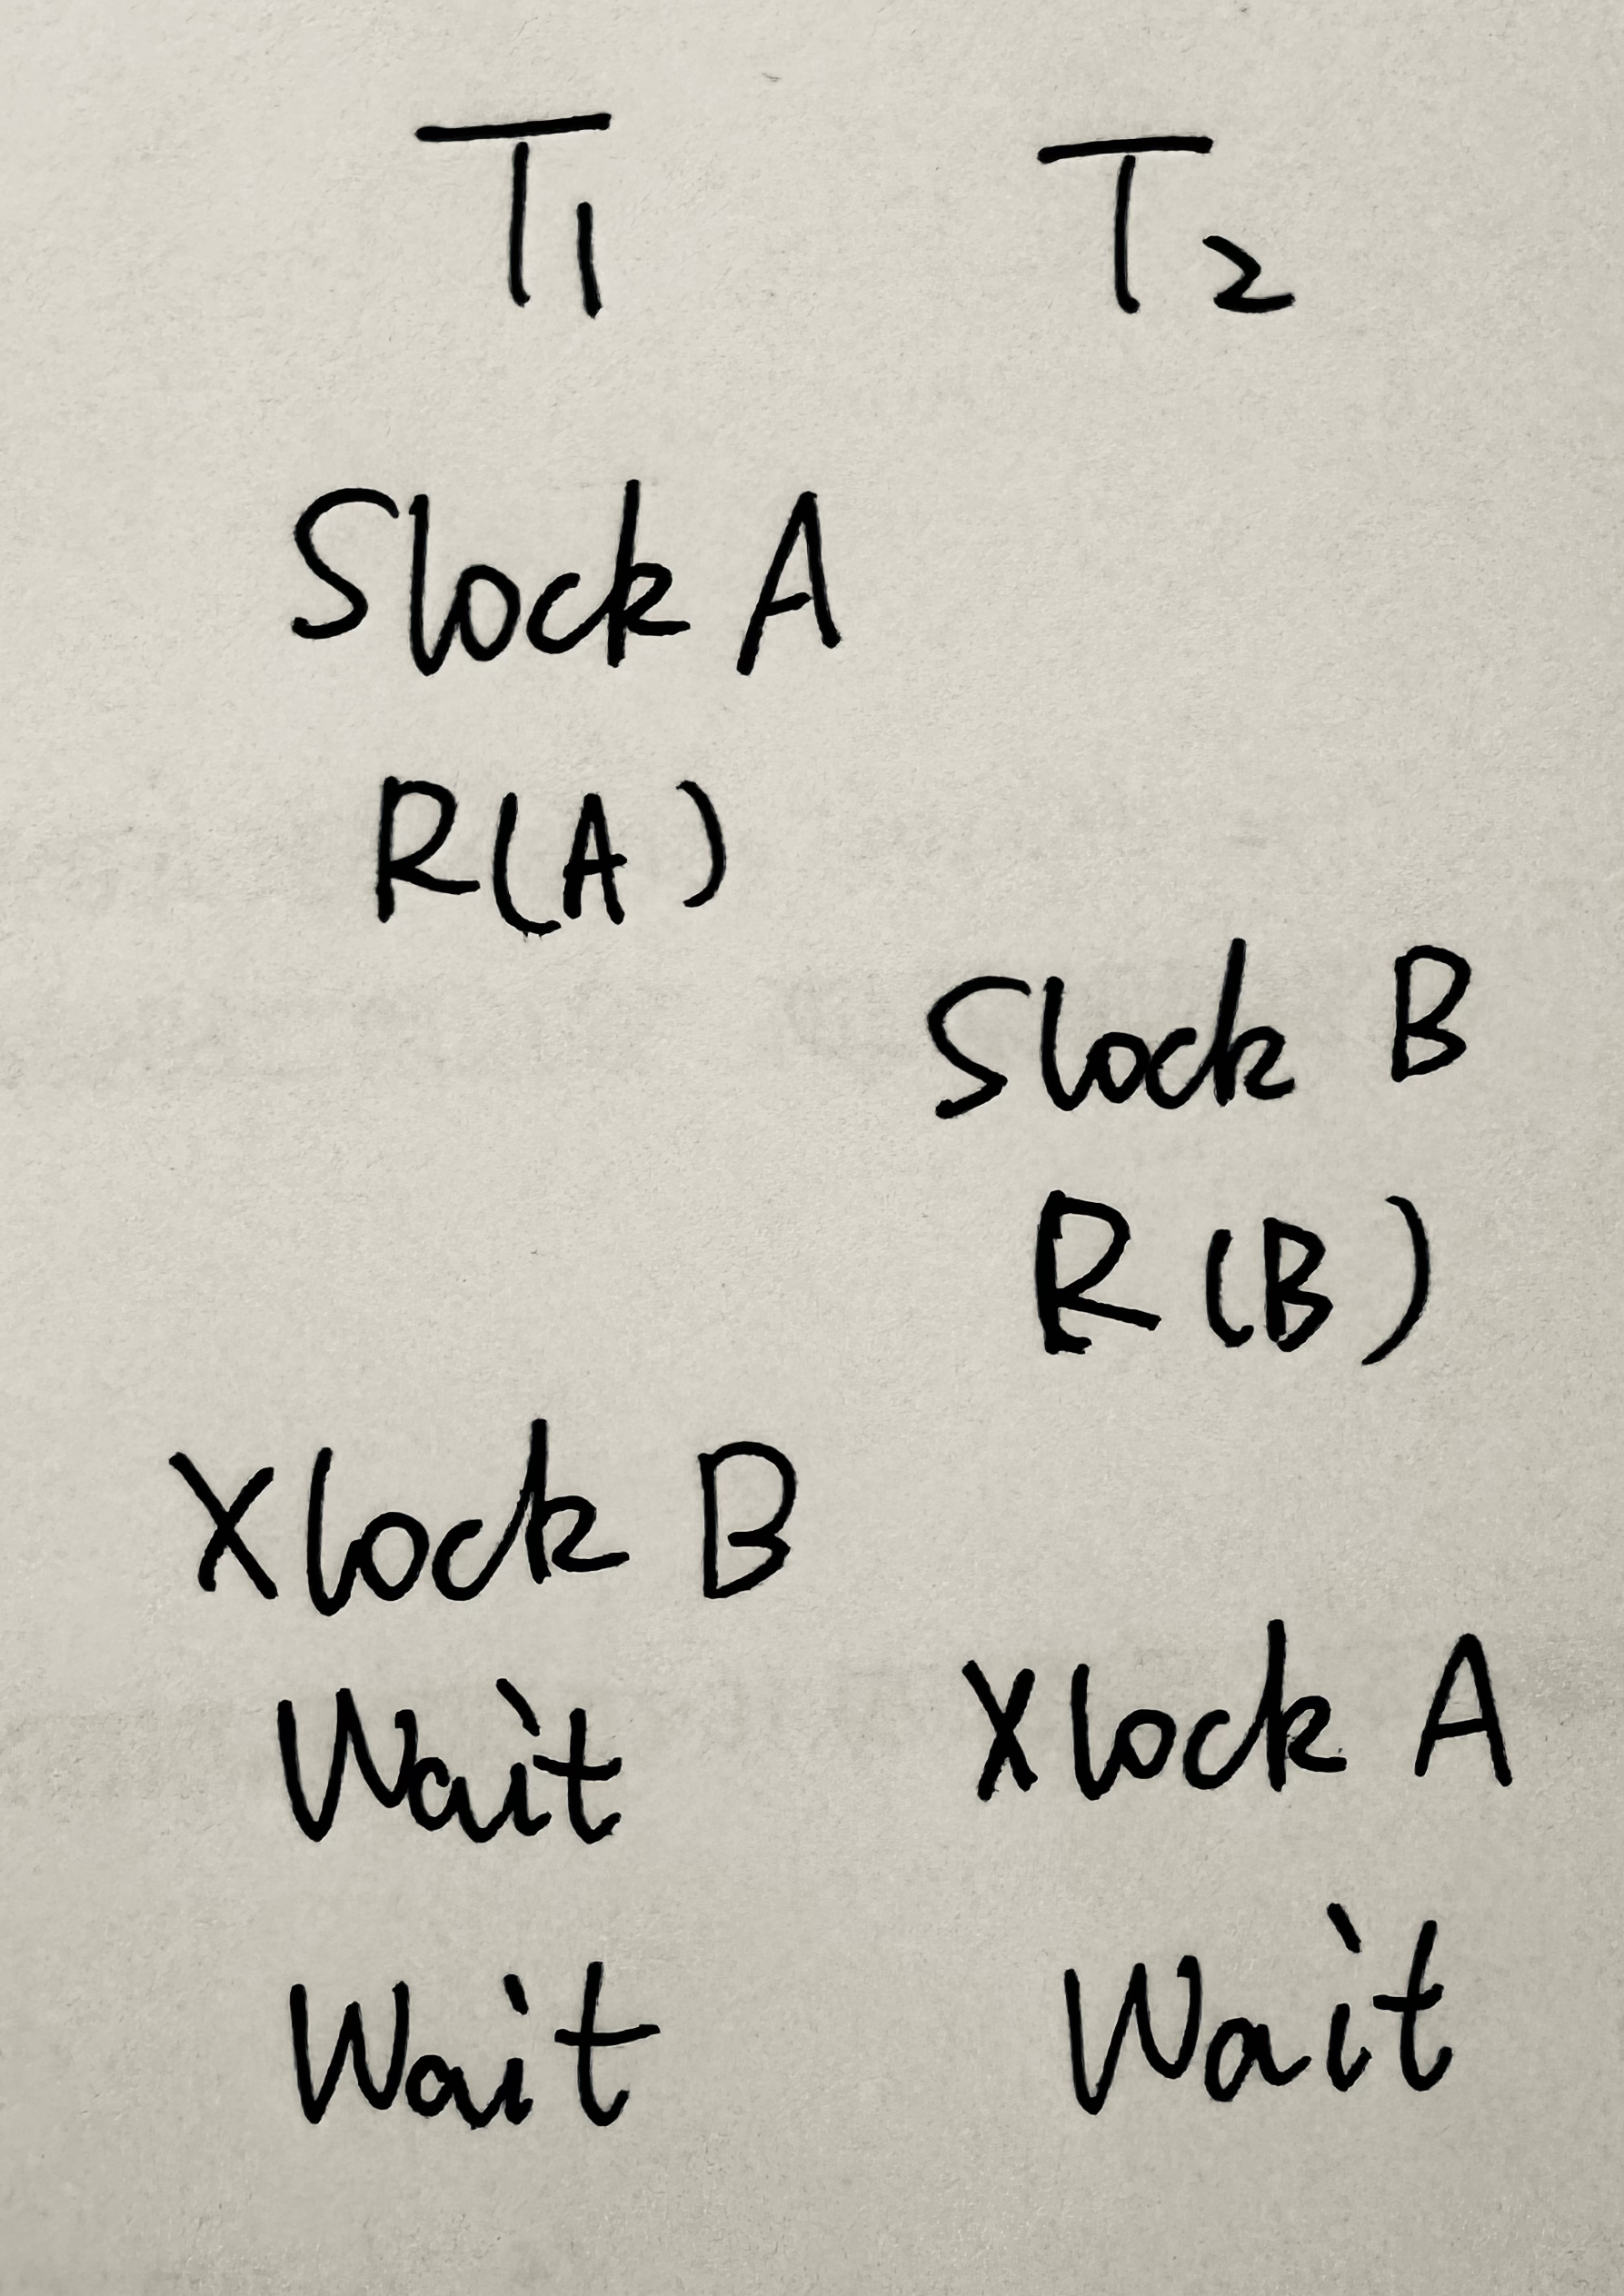 T1 T2
Slock A
R(A)
Slock B
R(B)
Xlock B
Wait Xlock A
Wait Wait